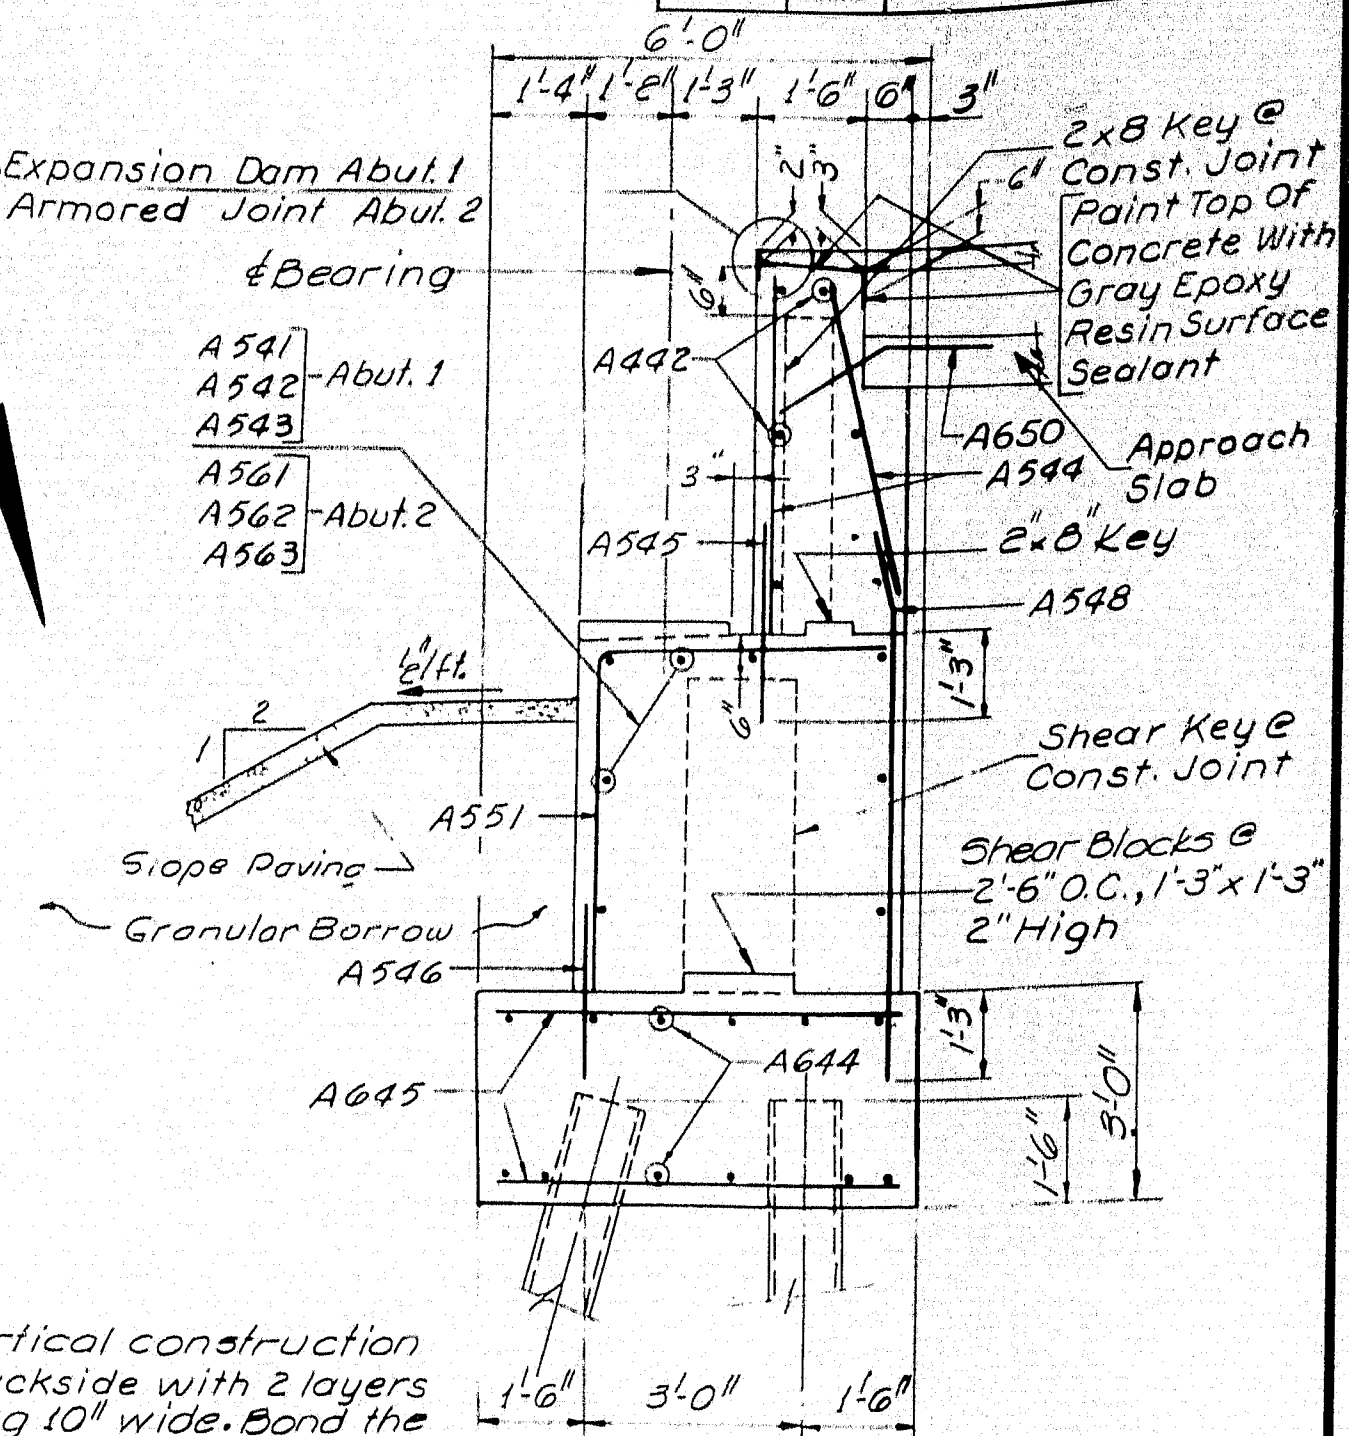 6'-0"
1'-4" 1'-2" 1'-3" 1'-6" 6" 3"
Expansion Dam Abut. 1
Armored Joint Abut. 2
℄ Bearing
2" 3"
6"
2x8 Key @
Const. Joint
Paint Top Of
Concrete With
Gray Epoxy
Resin Surface
Sealant
A541
A542
A543
Abut. 1
A561
A562
A563
Abut. 2
A442
A650
Approach
Slab
A544
3"
A545
2"x8" Key
A548
1/2"/ft.
2
1
6"
1'-3"
Shear Key @
Const. Joint
A551
Slope Paving
Shear Blocks @
2'-6" O.C., 1'-3" x 1'-3"
2" High
Granular Borrow
A546
1'-3"
A644
A645
3'-0"
1'-6"
1'-6" 3'-0" 1'-6"
rtical construction
ckside with 2 layers
g 10" wide. Bond the